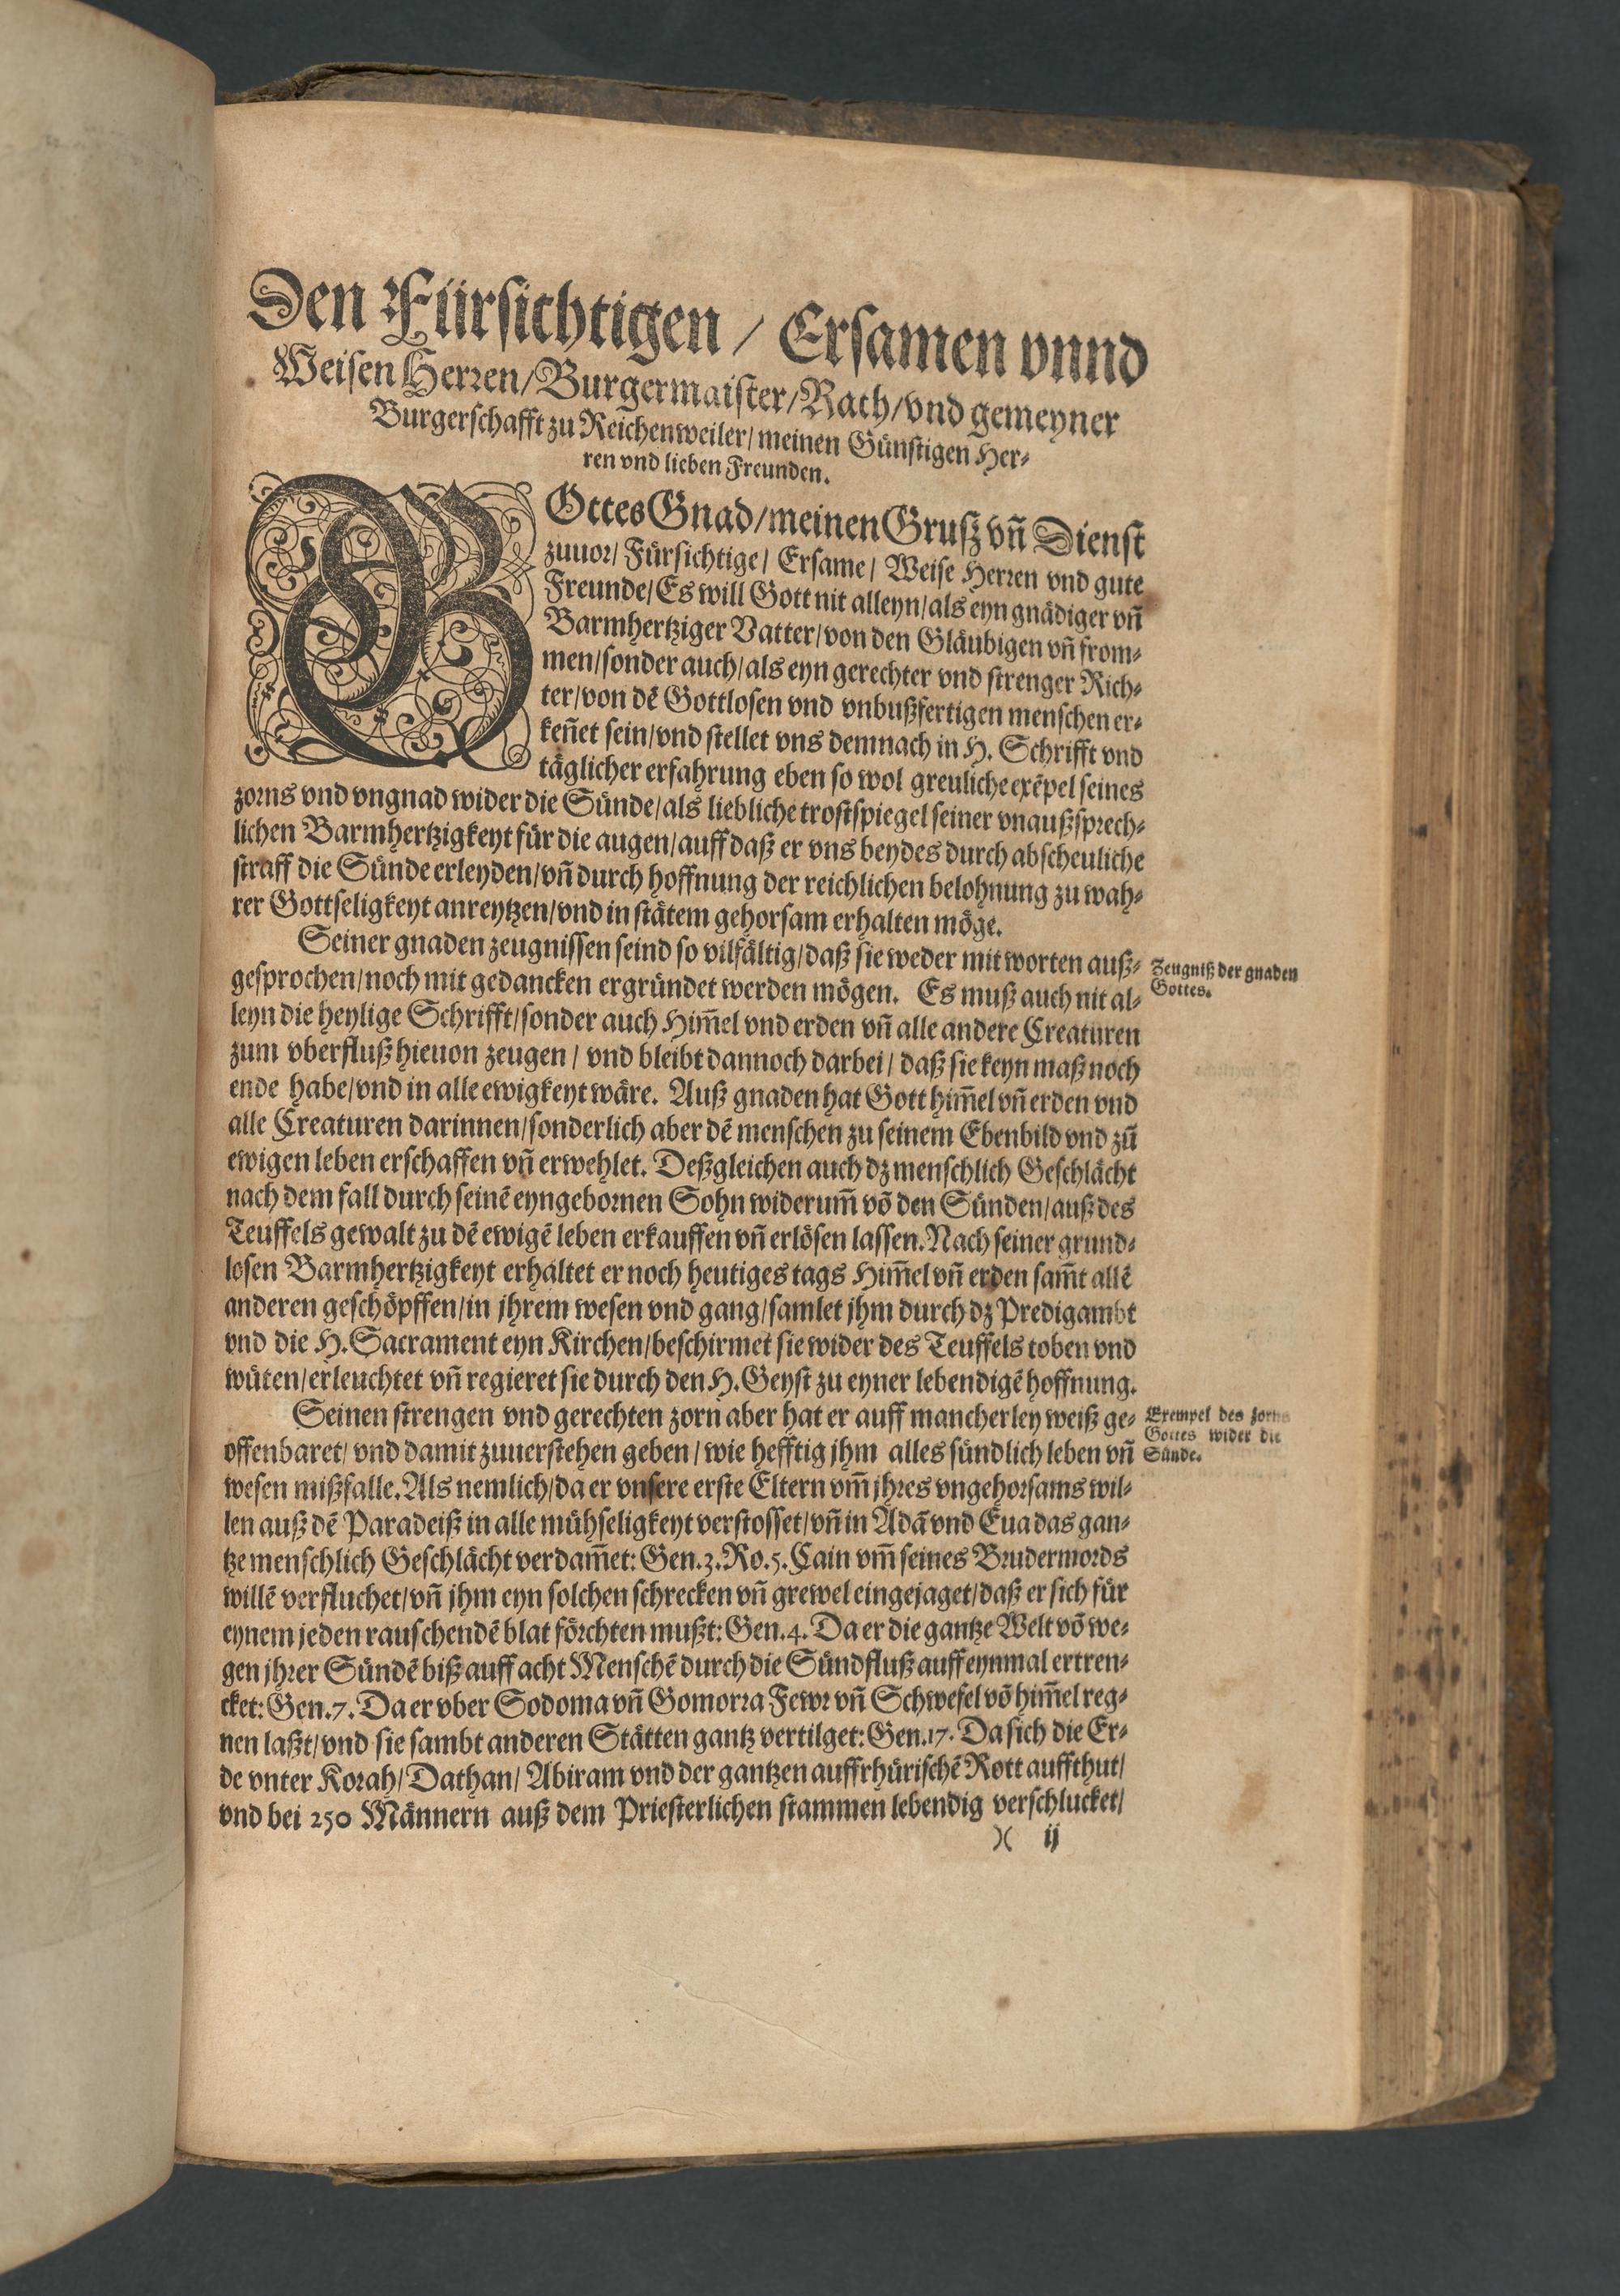 Den Fürsichtigen / Ersamen vnnd
Weisen Herren/Burgermaister/Rath/vnd gemeyner
Burgerschafft zu Reichenweiler/meinen Günstigen Her⸗
ren vnd lieben Freunden.
GOttes Gnad/meinen Gruß vñ Dienst
zuuor/ Fürsichtige/ Ersame/ Weise Herren vnd gute
Freunde/Es will Gott nit alleyn/als eyn gnädiger vñ
Barmhertziger Vatter/von den Gläubigen vñ from⸗
men/sonder auch/als eyn gerechter vnd strenger Rich⸗
ter/von dē Gottlosen vnd vnbußfertigen menschen er⸗
keñet sein/vnd stellet vns demnach in H. Schrifft vnd
täglicher erfahrung eben so wol greuliche exēpel seines
zorns vnd vngnad wider die Sünde/als liebliche trostspiegel seiner vnaußsprech⸗
lichen Barmhertzigkeyt für die augen/auff daß er vns beydes durch abscheuliche
straff die Sünde erleyden/vñ durch hoffnung der reichlichen belohnung zu wah⸗
rer Gottseligkeyt anreytzen/vnd in stätem gehorsam erhalten möge.
Seiner gnaden zeugnissen seind so vilfältig/daß sie weder mit worten auß⸗
gesprochen/noch mit gedancken ergründet werden mögen. Es muß auch nit al⸗
leyn die heylige Schrifft/sonder auch Him̃el vnd erden vñ alle andere Creaturen
zum vberfluß hieuon zeugen/ vnd bleibt dannoch darbei/ daß sie keyn maß noch
ende habe/vnd in alle ewigkeyt wäre. Auß gnaden hat Gott him̃el vñ erden vnd
alle Creaturen darinnen/sonderlich aber dē menschen zu seinem Ebenbild vnd zū
ewigen leben erschaffen vñ erwehlet. Deßgleichen auch dz menschlich Geschlächt
nach dem fall durch seinē eyngebornen Sohn widerum̃ vō den Sünden/auß des
Teuffels gewalt zu dē ewigē leben erkauffen vñ erlösen lassen. Nach seiner grund⸗
losen Barmhertzigkeyt erhaltet er noch heutiges tags Him̃el vñ erden sam̃t allē
anderen geschöpffen/in jhrem wesen vnd gang/samlet jhm durch dz Predigambt
vnd die H. Sacrament eyn Kirchen/beschirmet sie wider des Teuffels toben vnd
wüten/erleuchtet vñ regieret sie durch den H. Geyst zu eyner lebendigē hoffnung.
Seinen strengen vnd gerechten zorn aber hat er auff mancherley weiß ge⸗
offenbaret/ vnd damit zuuerstehen geben/ wie hefftig jhm alles sündlich leben vñ
wesen mißfalle. Als nemlich/da er vnsere erste Eltern vm̃ jhres vngehorsams wil⸗
len auß dē Paradeiß in alle mühseligkeyt verstosset/vñ in Adā vnd Eua das gan⸗
tze menschlich Geschlächt verdam̃et: Gen.3.Ro.5. Cain vm̃ seines Brudermords
willē verfluchet/vñ jhm eyn solchen schrecken vñ grewel eingejaget/daß er sich für
eynem jeden rauschendē blat förchten mußt: Gen.4. Da er die gantze Welt vō we⸗
gen jhrer Sündē biß auff acht Menschē durch die Sündfluß auff eynmal ertren⸗
cket: Gen.7. Da er vber Sodoma vñ Gomorra Fewr vñ Schwefel vō him̃el reg⸗
nen laßt/vnd sie sambt anderen Stätten gantz vertilget: Gen.17. Da sich die Er⸗
de vnter Korah/ Dathan/ Abiram vnd der gantzen auffrhürischē Rott auffthut/
vnd bei 250 Männern auß dem Priesterlichen stammen lebendig verschlucket/
)( ij
Zeugniß der gnaden
Gottes.
Exempel des zorns
Gottes wider die
Sünde.